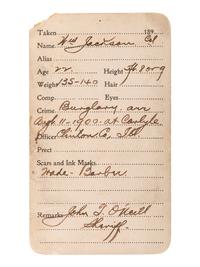 Taken 189
Name Wm Jackson Col
Alias
Age 22 Height 5ft 8 or 9
Weight 135-140 Hair
Comp. Eyes
Crime Burglary arr
Aug 11-1900 at Carlyle
Officer Clinton Co, Ill.
Prect
Scars and Ink Marks
Trade-Barber
Remarks John T. O'Neill
Sheriff.